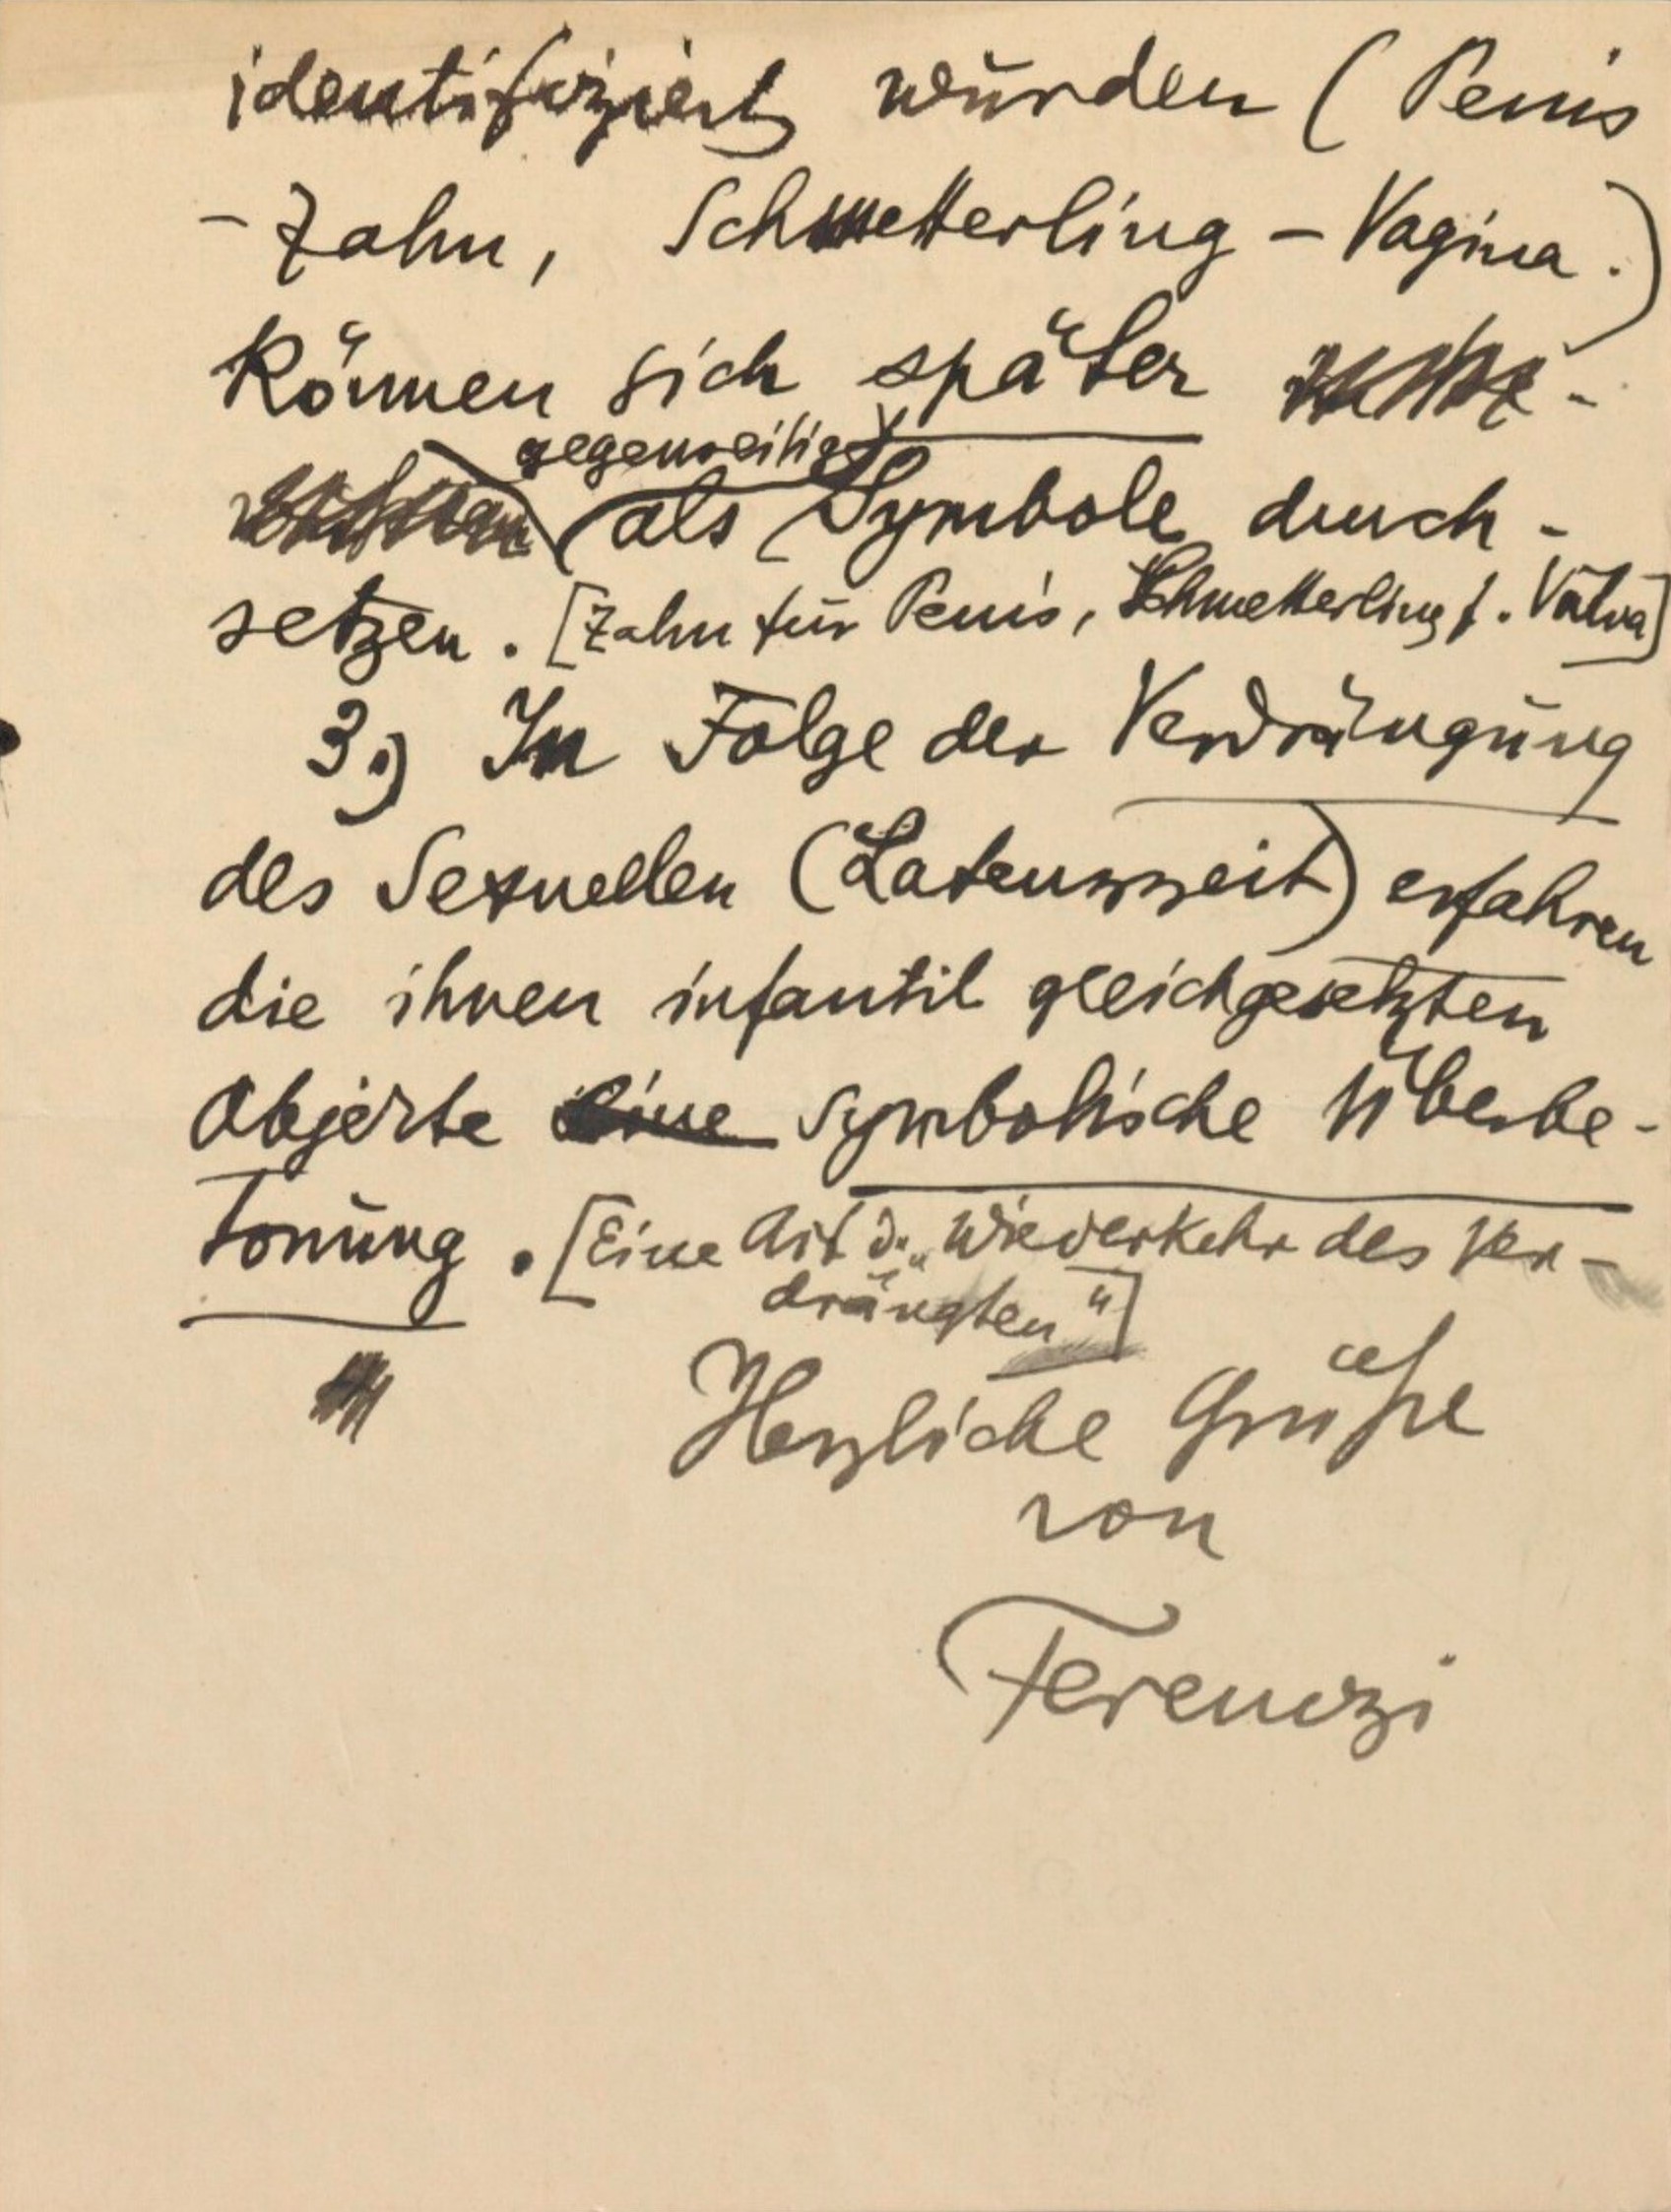 identifiziert wurden (Penis
- Zahn, Schmetterling - Vagina.)
können sich später
gegenseitig
als Symbole durch-
setzen. [Zahn für Penis, Schmetterling f. Vulva]
3.) In Folge der Verdrängung
des Sexuellen (Latenzzeit) erfahren
die ihnen infantil gleichgesetzten
Objekte eine symbolische Überbe-
tonung. [Eine Art d. „Wiederkehr des Ver-
drängten"]
Herzliche Grüße
von
Ferenczi